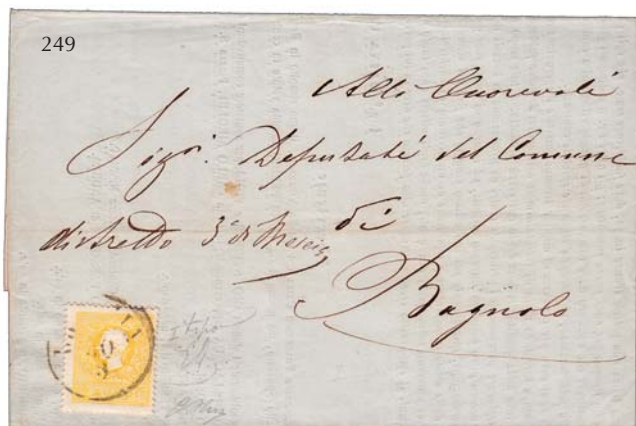 249
Alli Onorevoli
Sigri. Deputati del Comune
di
distretto 3° di Brescia
Bagnolo
I tipo